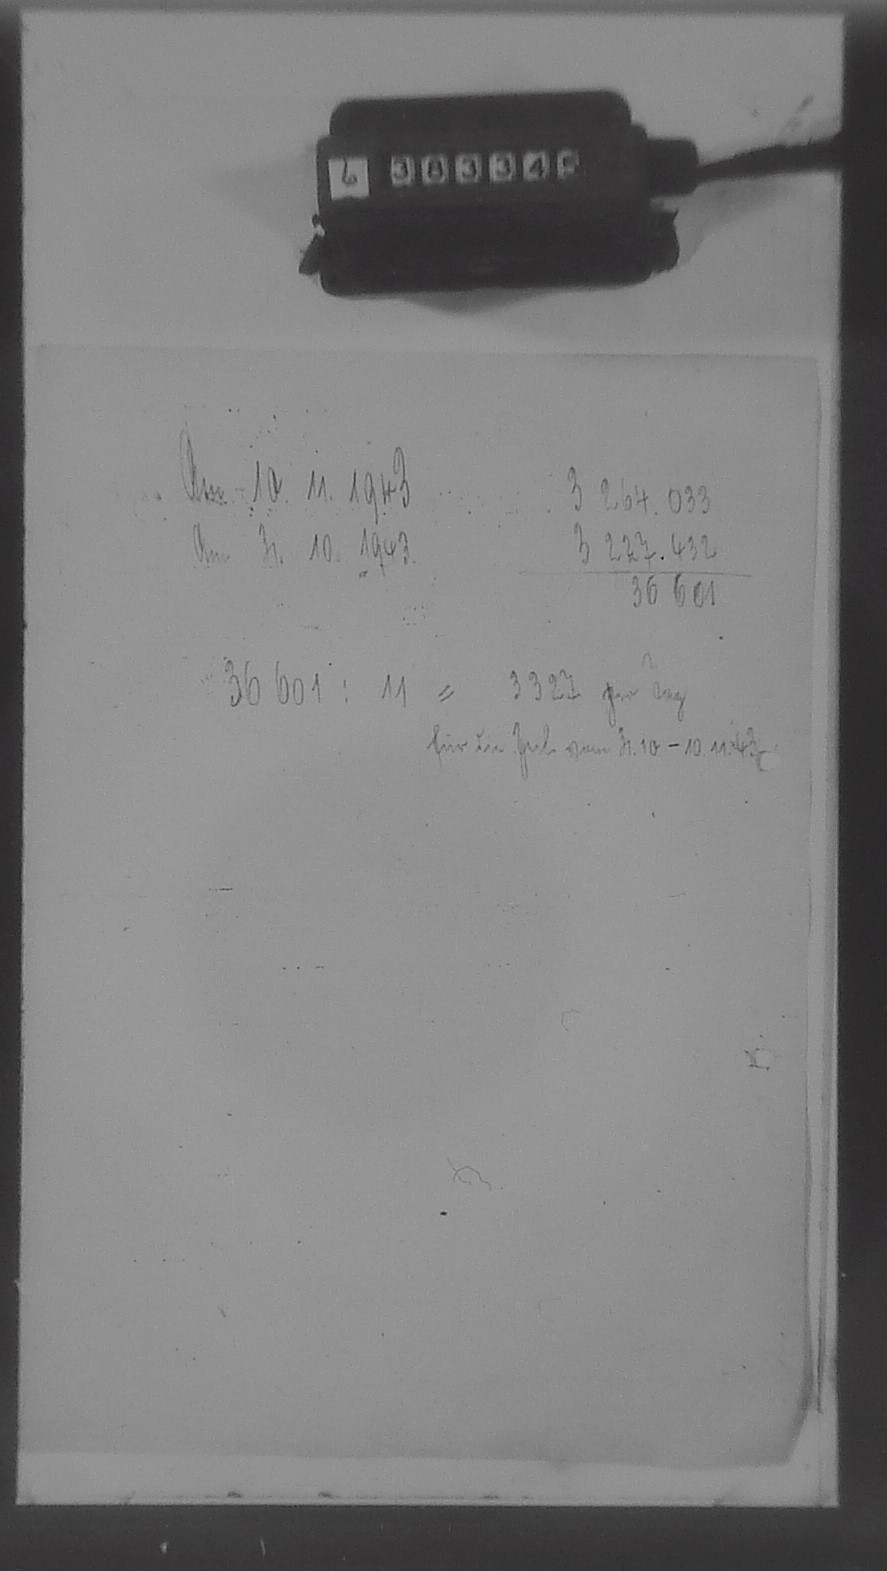 6 383345
Am 10. 11. 1943 3 264.033
Am 31. 10. 1943. 3 227.432
36 601
36 601 : 11 = 3327 pro Tag
für die Zeit vom 31.10 - 10.11.43